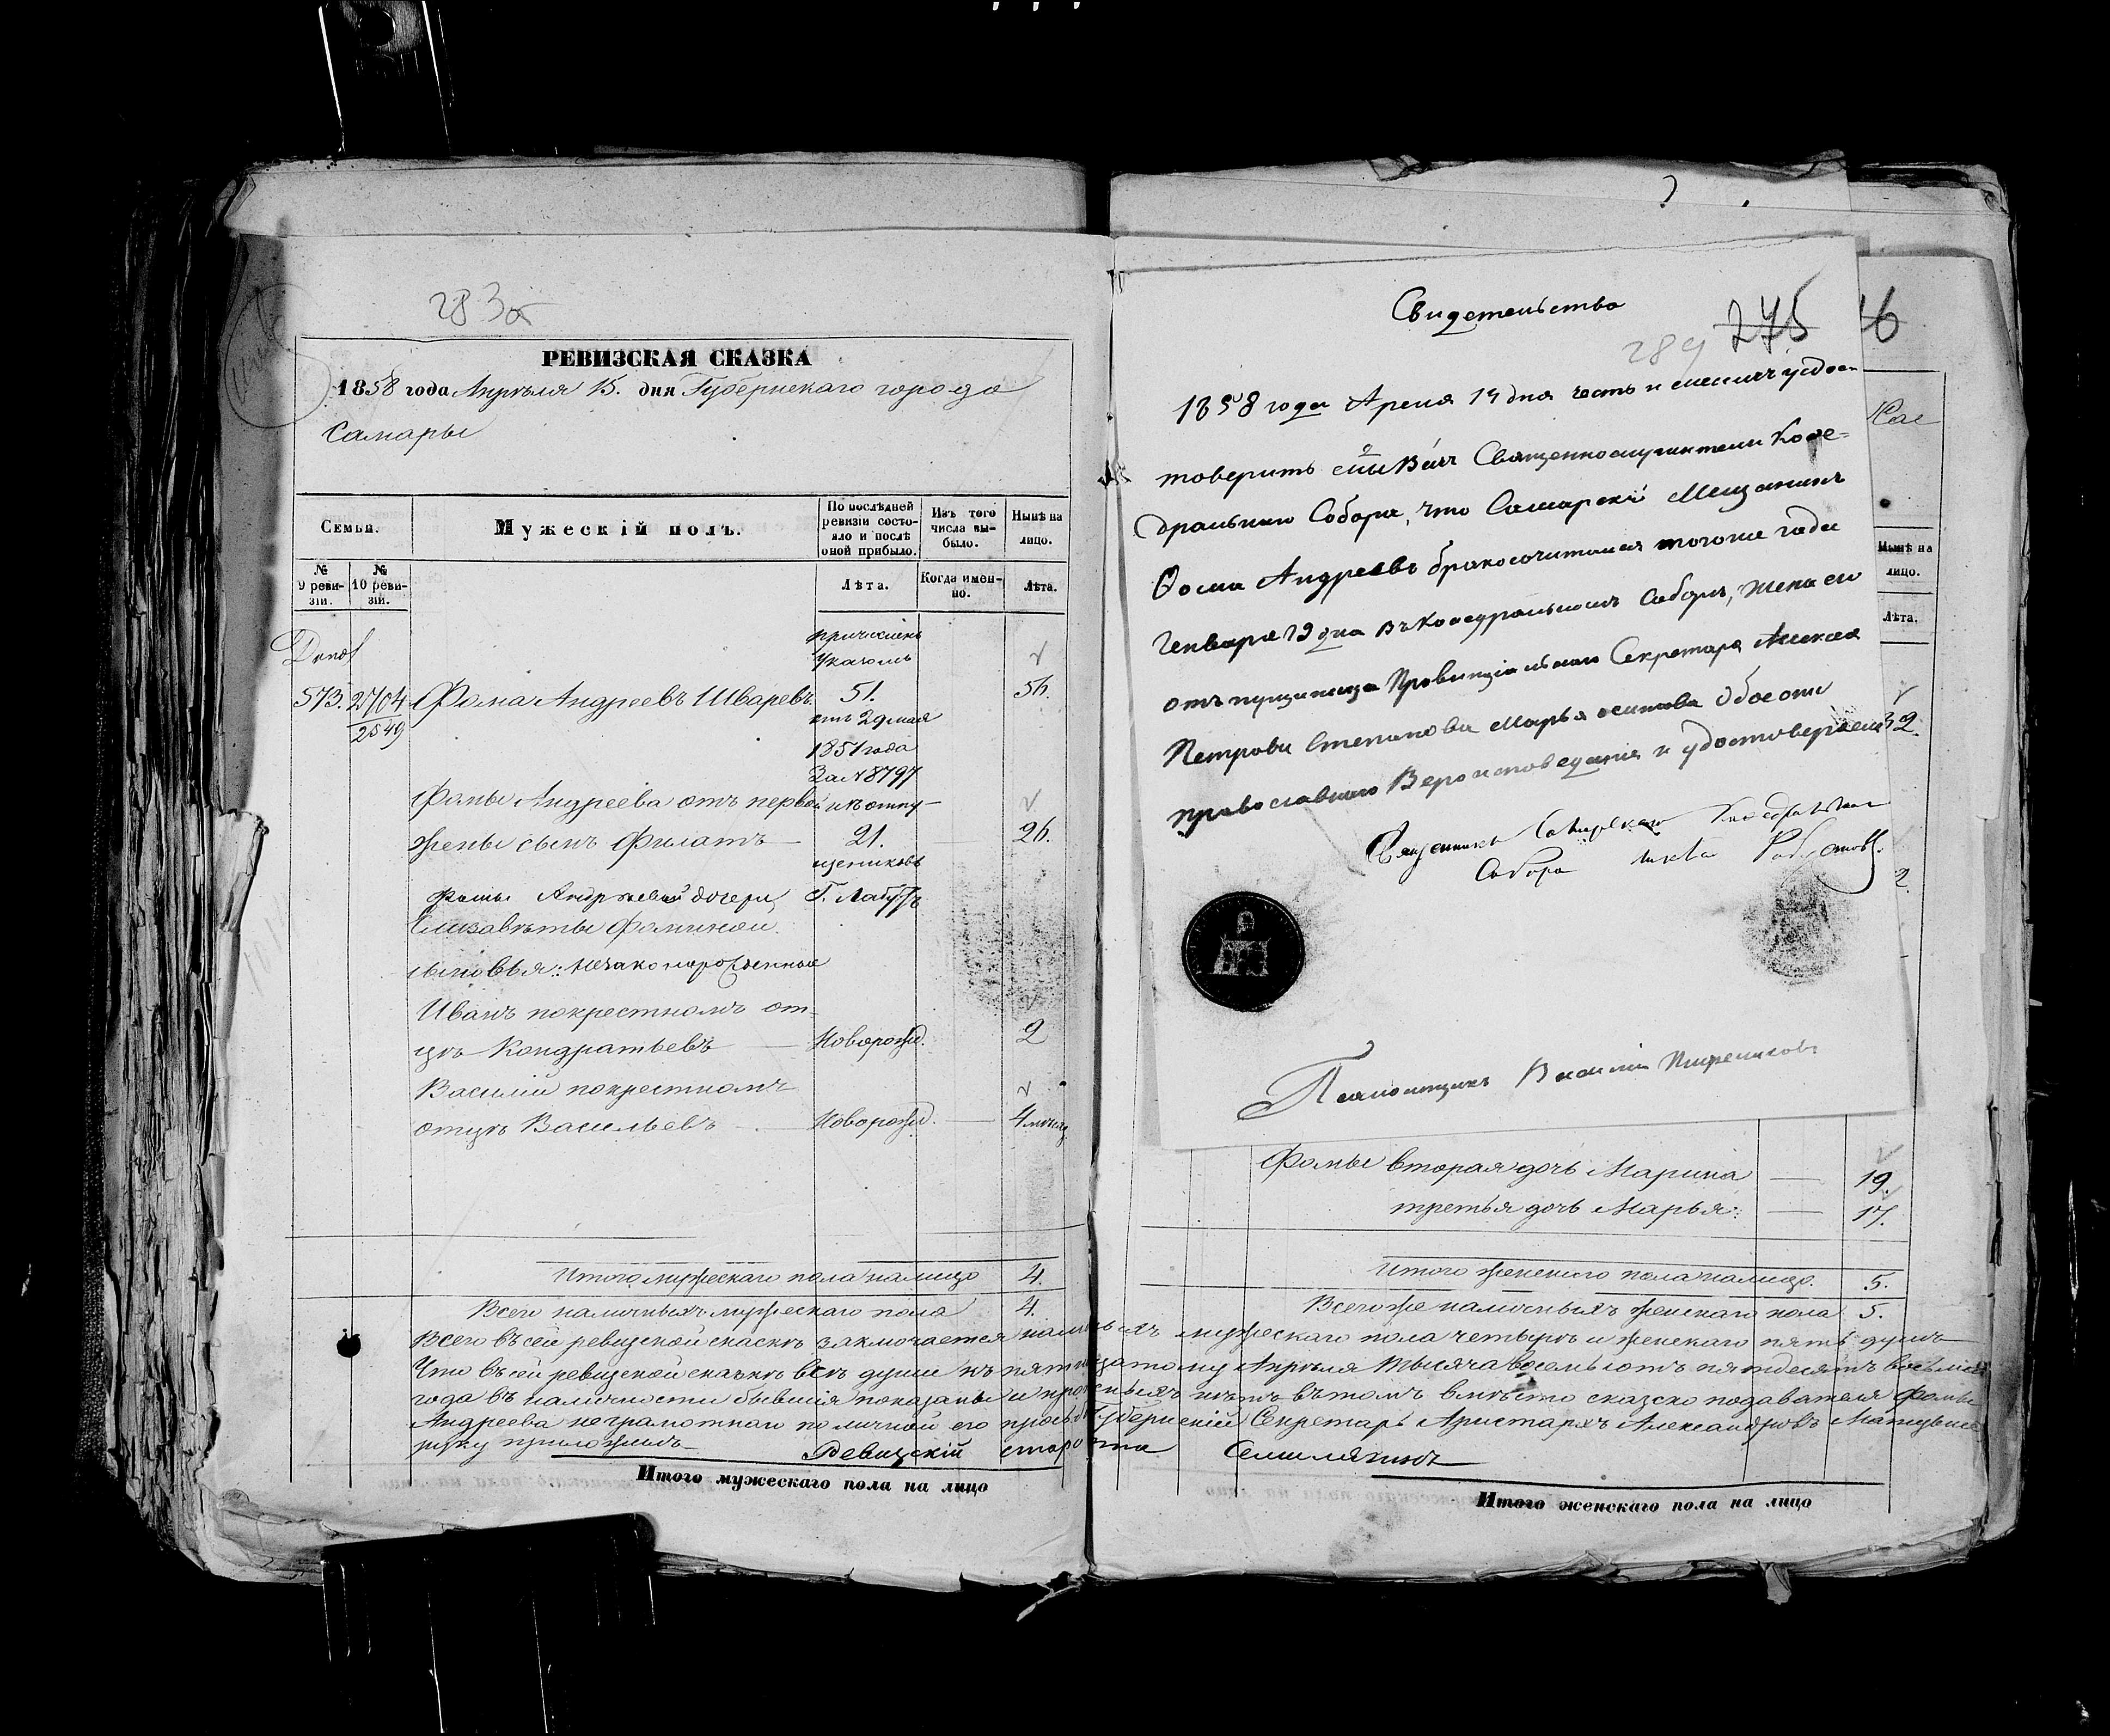 283об
РЕВИЗСКАЯ СКАЗКА
1858 года Апрѣля 15. дня Губернскаго города
Самары
Семьи.
Мужескій полъ.
По послѣдней ревизіи состояло и послѣ оной прибыло.
Изъ того числа выбыло.
Нынѣ на лицо.
№ 9 ревизіи.
№ 10 ревизіи.
Лѣта.
Когда именно.
Лѣта.
причисленъ
Указомъ
573. 2704 Фома Андреевъ Шваревъ. 51. 56.
2549
отъ 29 мая
1851 года
За № 8797
Фомы Андреева отъ первой изъ отпу-
жены сынъ Филатъ — 21. 26.
щениковъ
Фомы Андреевой дочери Г.
Елизаветы Фоминой.
сыновья: незаконорожденные
Иванъ покрестному от-
цѣ Кондратьевъ — Новорожд. 2
Василій покрестному
отцѣ Васильевъ — Новорожд. — 4 мѣсяц.
Итого мужескаго пола налицо 4.
Всего наличныхъ мужескаго пола 4.
Свидетельство
289 275
1858 года Апреля 14 дня честь имеемъ удос-
товерить Священнослужители Кафе-
дральнаго Собора, что Самарскій Мещанинъ
Фома Андреевъ бракосочитался тогоже года
Генваря 19 дня въ Кафедральномъ Соборѣ, жена его
отъ пущеница Провинціальнаго Секретаря Алексея
Петрова Степанова Марья Осипова Обое они
православнаго Вероисповедания и удостоверяемъ
Священникъ Самарскаго Кафедральнаго
Собора
Василій
Нынѣ на лицо.
Лѣта.
32.
2.
Фомы вторая дочь Марина — 19.
третья дочь Марья: — 17.
Итого женскаго пола налицо. 5.
Всего же наличныхъ женскаго пола 5.
Всего въ сей ревизской сказкѣ заключается наличныхъ мужескаго пола четыре и женскаго пять душъ
Что въ сей ревизской сказкѣ всѣ души къ пятнадцатому Апрѣля тысяча восемьсотъ пятдесятъ восьмаго
года въ наличности бывшія показаны и прописныхъ нѣтъ въ томъ вмѣсто сказко подавателя Фомы
Андреева неграмотнаго по личной его прозьбѣ Губернскій Секретарь Аристархъ Александровъ
руку приложилъ Ревизскій староста Семилякинъ
Итого мужескаго пола на лицо
Итого женскаго пола на лицо